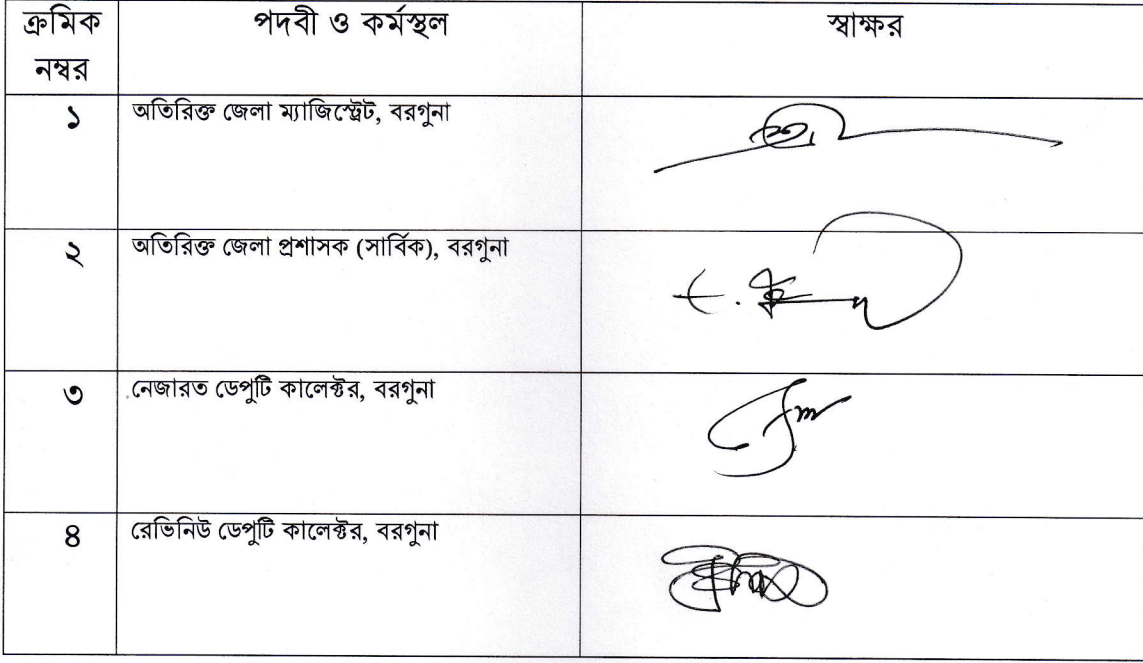 ক্রমিক নম্বর পদবী ও কর্মস্থল স্বাক্ষর
১ অতিরিক্ত জেলা ম্যাজিস্ট্রেট, বরগুনা
২ অতিরিক্ত জেলা প্রশাসক (সার্বিক), বরগুনা
৩ নেজারত ডেপুটি কালেক্টর, বরগুনা
৪ রেভিনিউ ডেপুটি কালেক্টর, বরগুনা